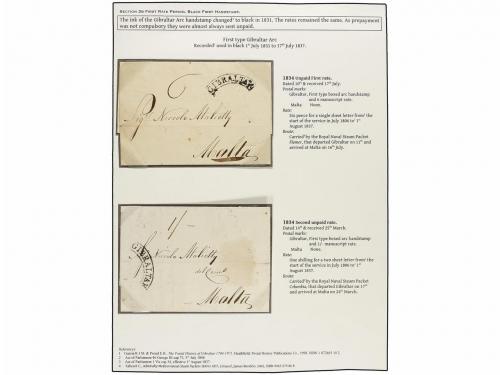 SECTION 2B FIRST RATE PERIOD. BLACK FIRST HANDSTAMP.
The ink of the Gibraltar Arc handstamp changed¹ to black in 1831. The rates remained the same. As prepayment
was not compulsory they were almost always sent unpaid.
First type Gibraltar Arc
Recorded¹ used in black 1ˢᵗ July 1831 to 17ᵗʰ July 1837.
1834 Unpaid First rate.
Dated 10ᵗʰ & received 17ᵗʰ July.
Postal marks:
Gibraltar, First type boxed arc handstamp
and 6 manuscript rate.
Malta None.
Rate:
Six pence for a single sheet letter from² the
start of the service in July 1806 to³ 1ˢᵗ
August 1837.
Route:
Carried⁴ by the Royal Naval Steam Packet
Flamer, that departed Gibraltar on 11ᵗʰ and
arrived at Malta on 16ᵗʰ July.
6
GIBRALTAR
Niccolo
Malta
1834 Second unpaid rate.
Dated 14ᵗʰ & received 25ᵗʰ March.
Postal marks:
Gibraltar, First type boxed arc handstamp
and 1/- manuscript rate.
Malta None.
Rate:
One shilling for a two sheet letter from² the
start of the service in July 1806 to³ 1ˢᵗ
August 1837.
Route:
Carried⁴ by the Royal Naval Steam Packet
Columbia, that departed Gibraltar on 17ᵗʰ
and arrived at Malta on 24ᵗʰ March.
1/-
GIBRALTAR
Niccolo
Malta
References: